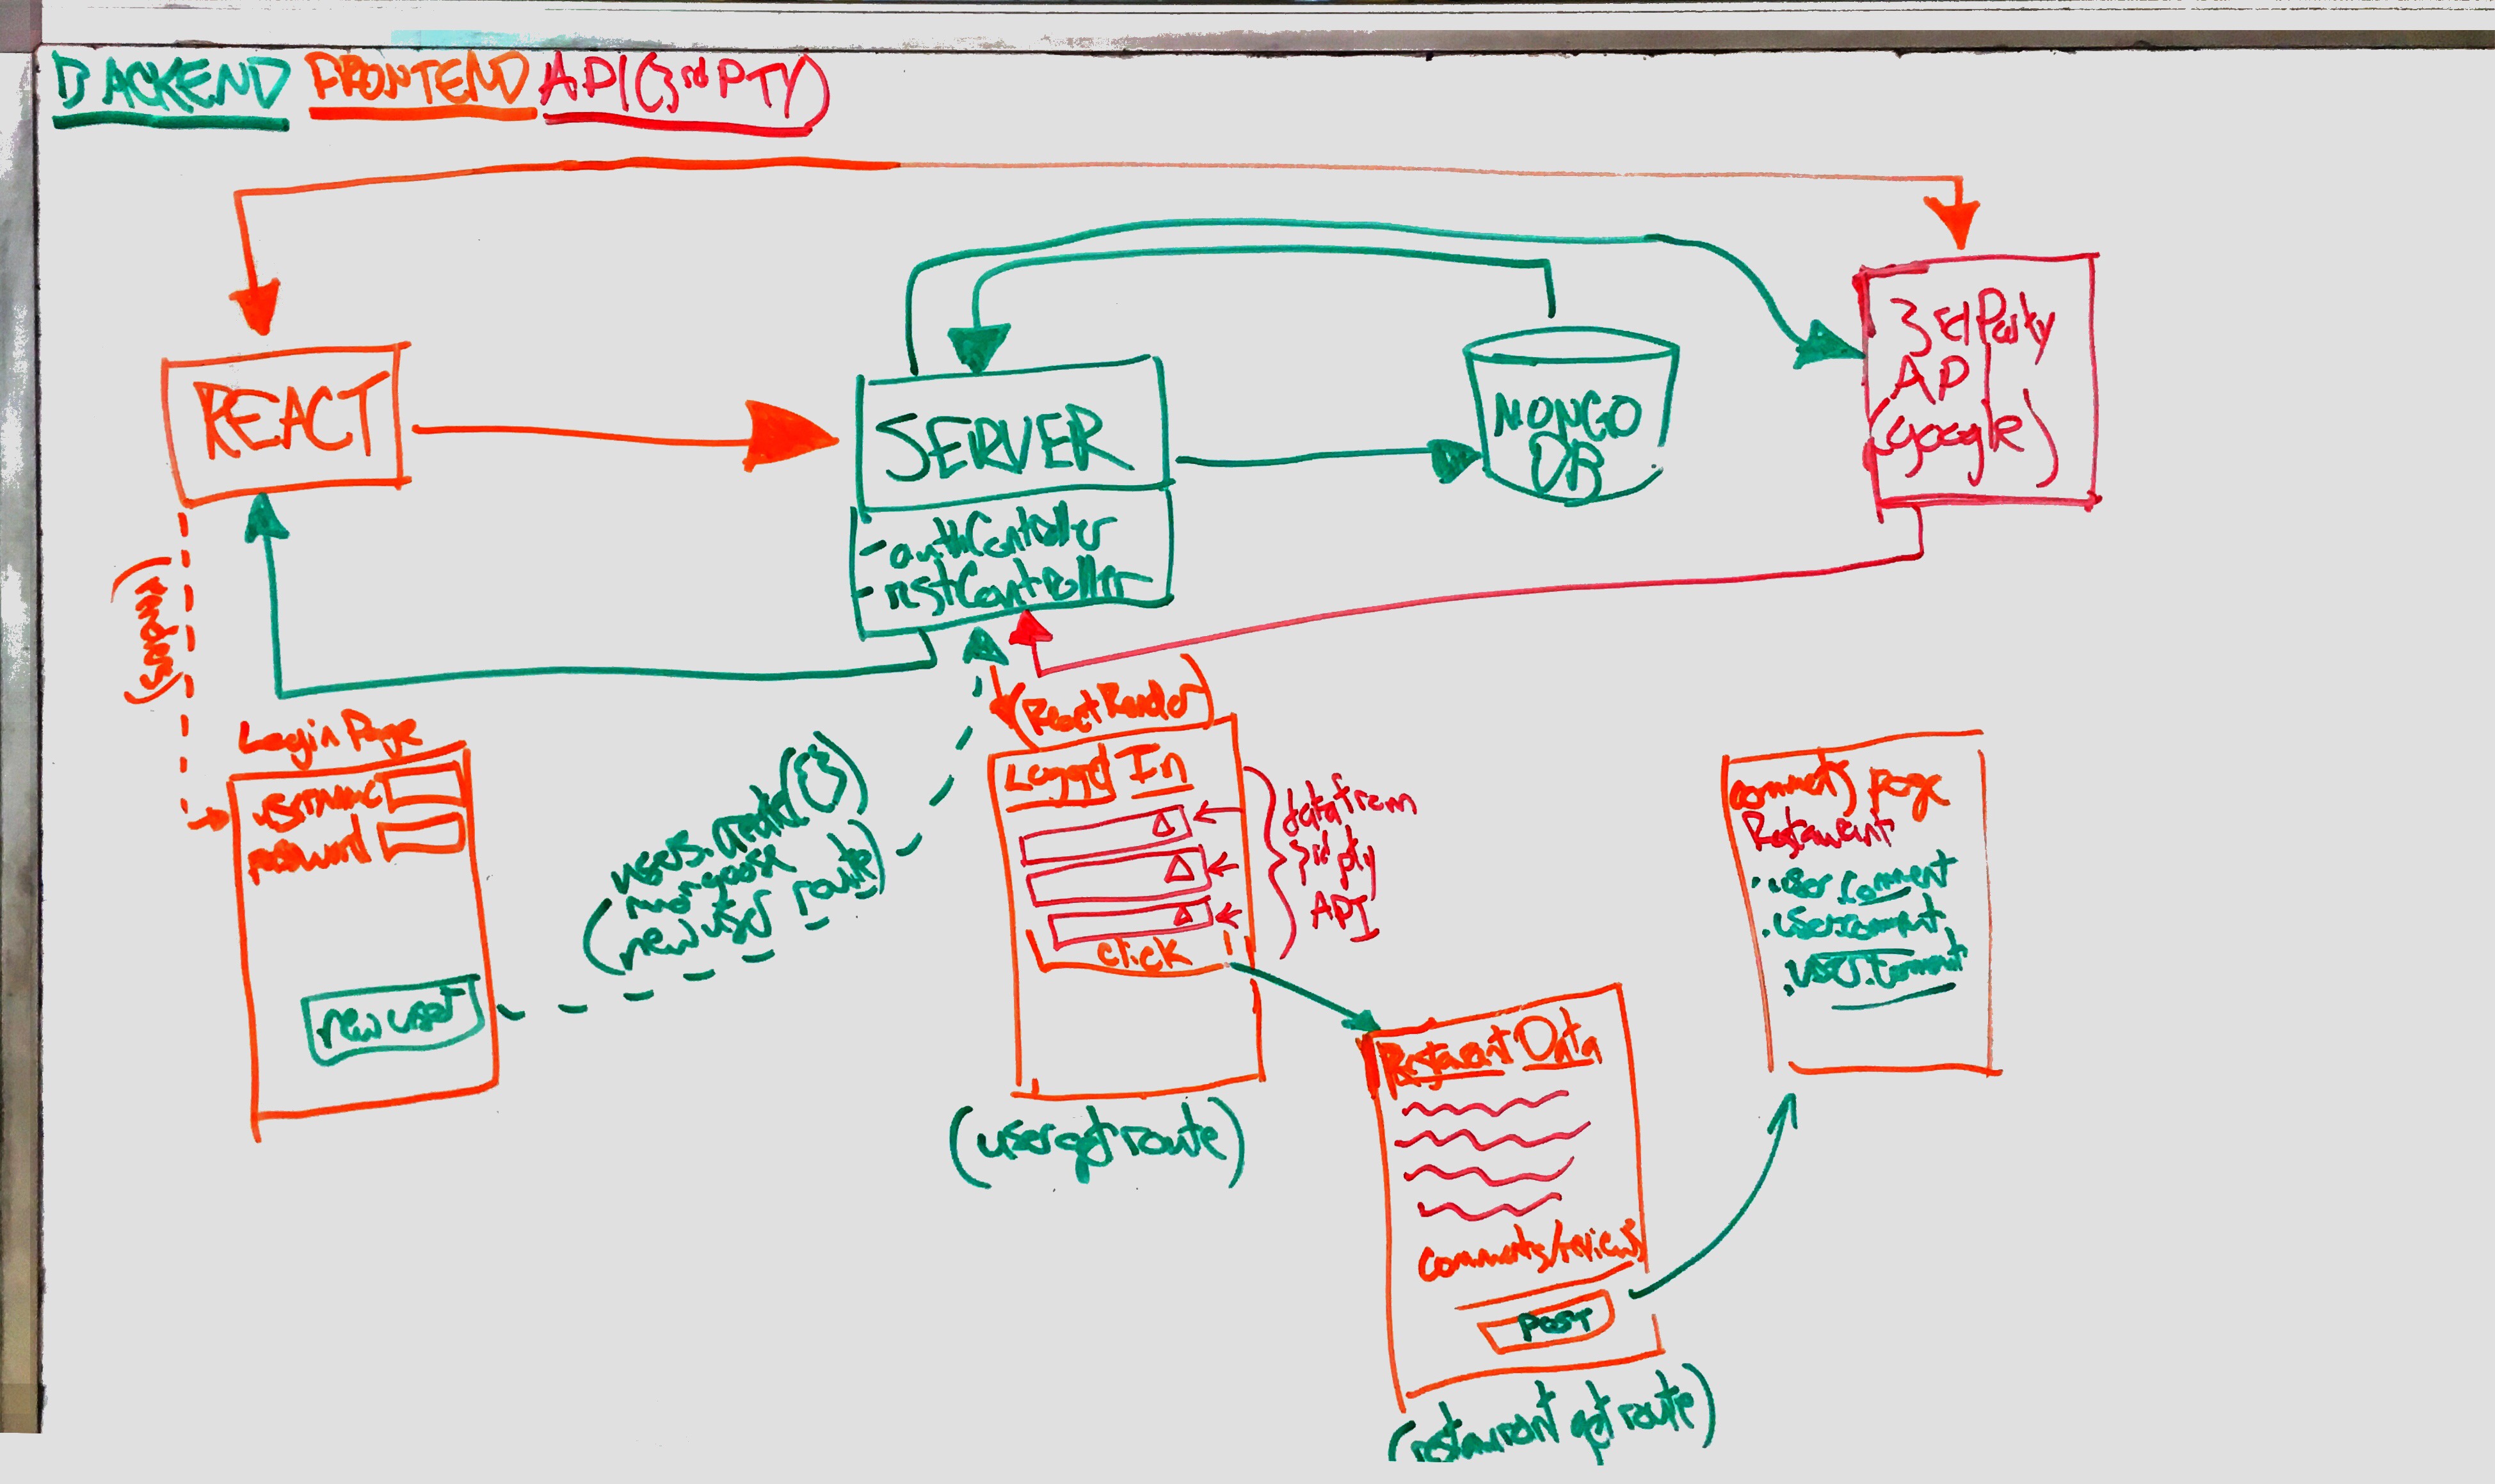 BACKEND FRONTEND API (3rd PTY)
REACT
SERVER
- authController
- restController
MONGO
DB
3rd Party
API
(google)
(React Render)
Login Page
username
password
new user
users.create({})
mongoose
(new user route)
Logged In
click
data from
3rd pty
API
(user get route)
Restaurant Data
comments/reviews
POST
(restaurant get route)
comments page
Restaurant
. user.comment
. user.comment
. user.comment